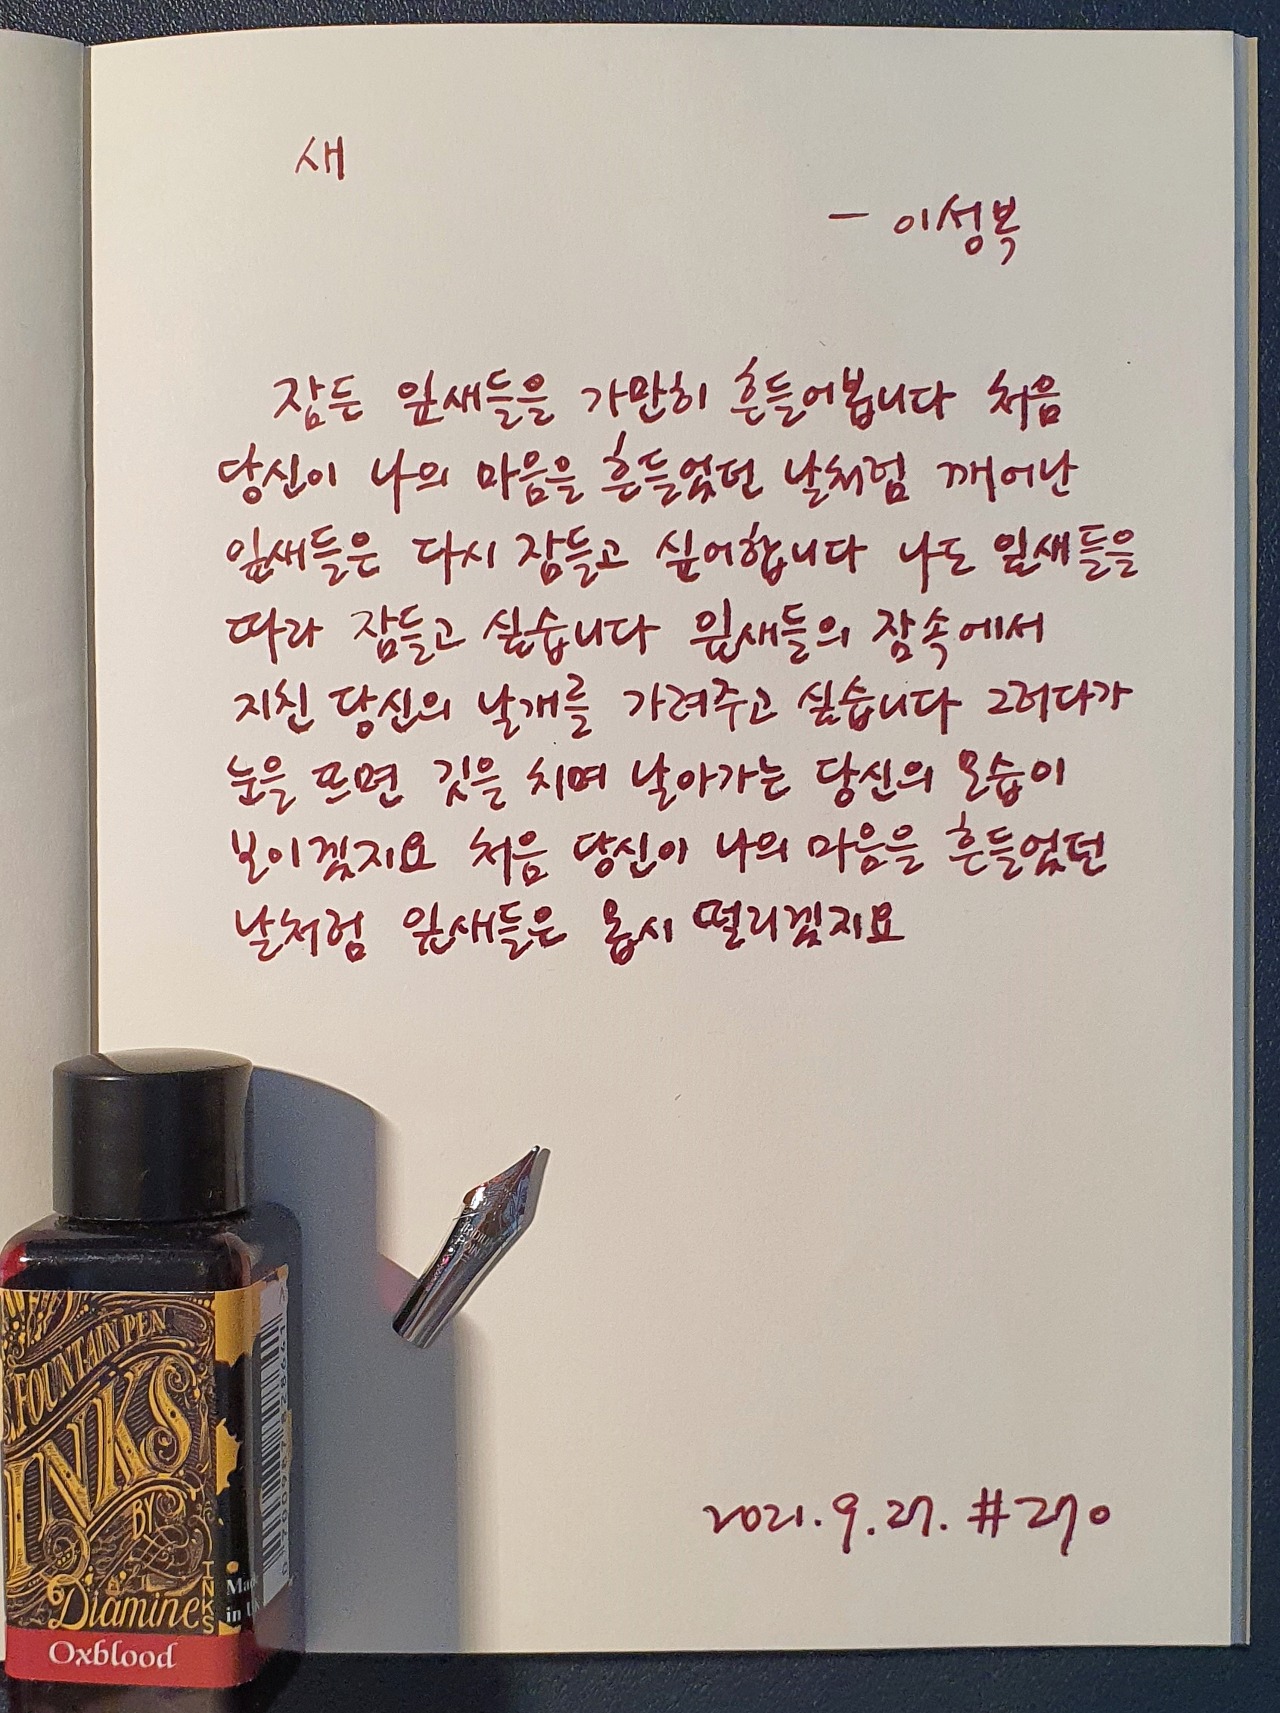 새
- 이성복
잠든 잎새들을 가만히 흔들어봅니다 처음
당신이 나의 마음을 흔들었던 날처럼 깨어난
잎새들은 다시 잠들고 싶어합니다 나도 잎새들을
따라 잠들고 싶습니다 잎새들의 잠속에서
지친 당신의 날개를 가려주고 싶습니다 그러다가
눈을 뜨면 깃을 치며 날아가는 당신의 모습이
보이겠지요 처음 당신이 나의 마음을 흔들었던
날처럼 잎새들은 몹시 떨리겠지요
2021.9.27. #270
FOUNTAIN PEN
INKS
BY
Diamine
INKS
Made
in
Oxblood